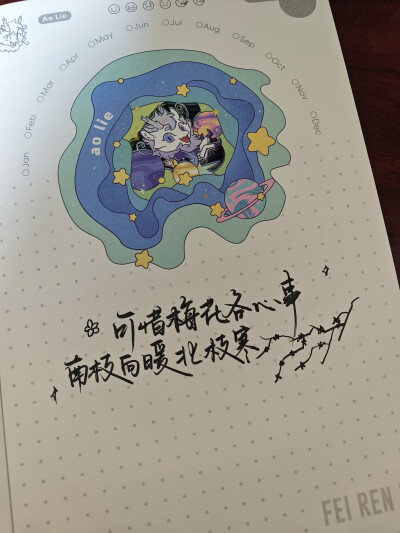 Ao Lie
Jan
Feb
Mar
Apr
May
Jun
Jul
Aug
Sep
Oct
Nov
Dec
ao lie
可惜梅花各心事
南枝向暖北枝寒
FEI REN